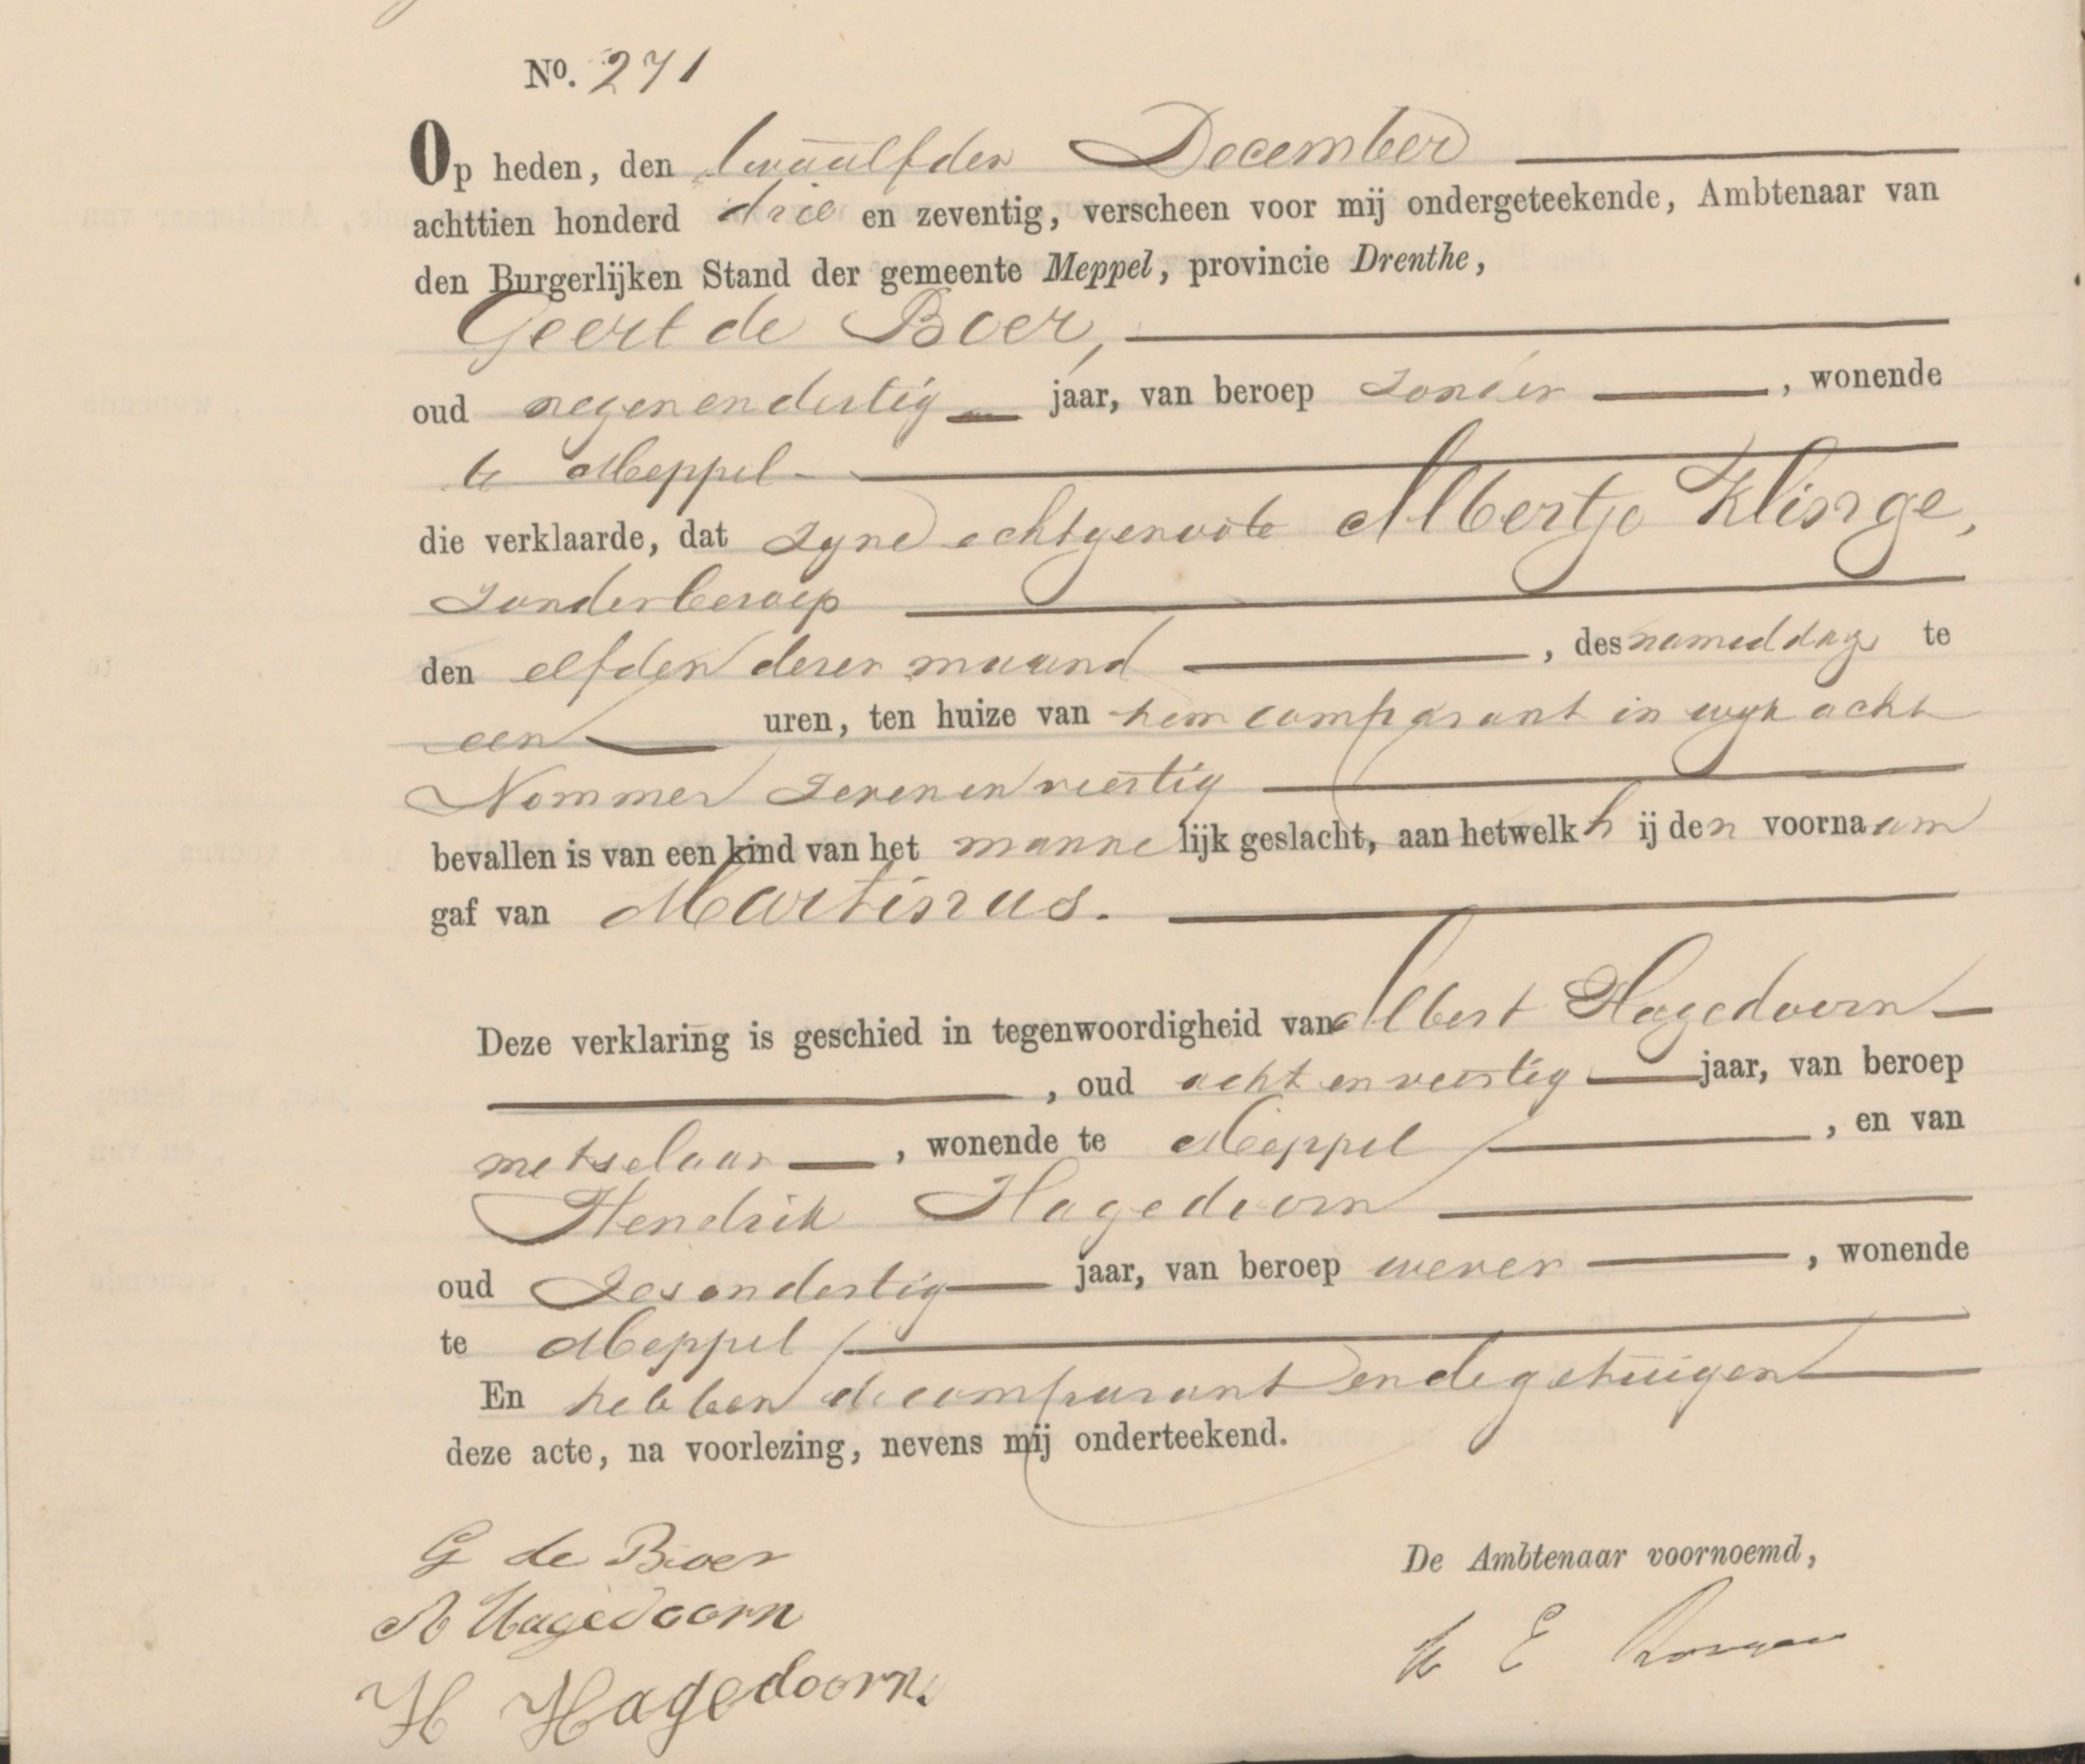 No. 271
Op heden, den twaalfden December
achttien honderd drie en zeventig, verscheen voor mij ondergeteekende, Ambtenaar van
den Burgerlijken Stand der gemeente Meppel, provincie Drenthe,
Geert de Boer,
oud negenendertig jaar, van beroep zonder, wonende
te Meppel
die verklaarde, dat zyne echtgenoote Albertje Klinge,
zonder beroep
den elfden dezer maand, des namiddags te
een uren, ten huize van hem comparant in wyk acht
Nommer zevenenveertig
bevallen is van een kind van het mannelijk geslacht, aan hetwelk hij den voornaam
gaf van Martinus.
Deze verklaring is geschied in tegenwoordigheid van Albert Hagedoorn
, oud achtenveertig jaar, van beroep
metselaar, wonende te Meppel, en van
Hendrik Hagedoorn
oud zesendertig jaar, van beroep wever, wonende
te Meppel
En hebben de comparant en de getuigen
deze acte, na voorlezing, nevens mij onderteekend.
G de Boer
A Hagedoorn
H Hagedoorn.
De Ambtenaar voornoemd,